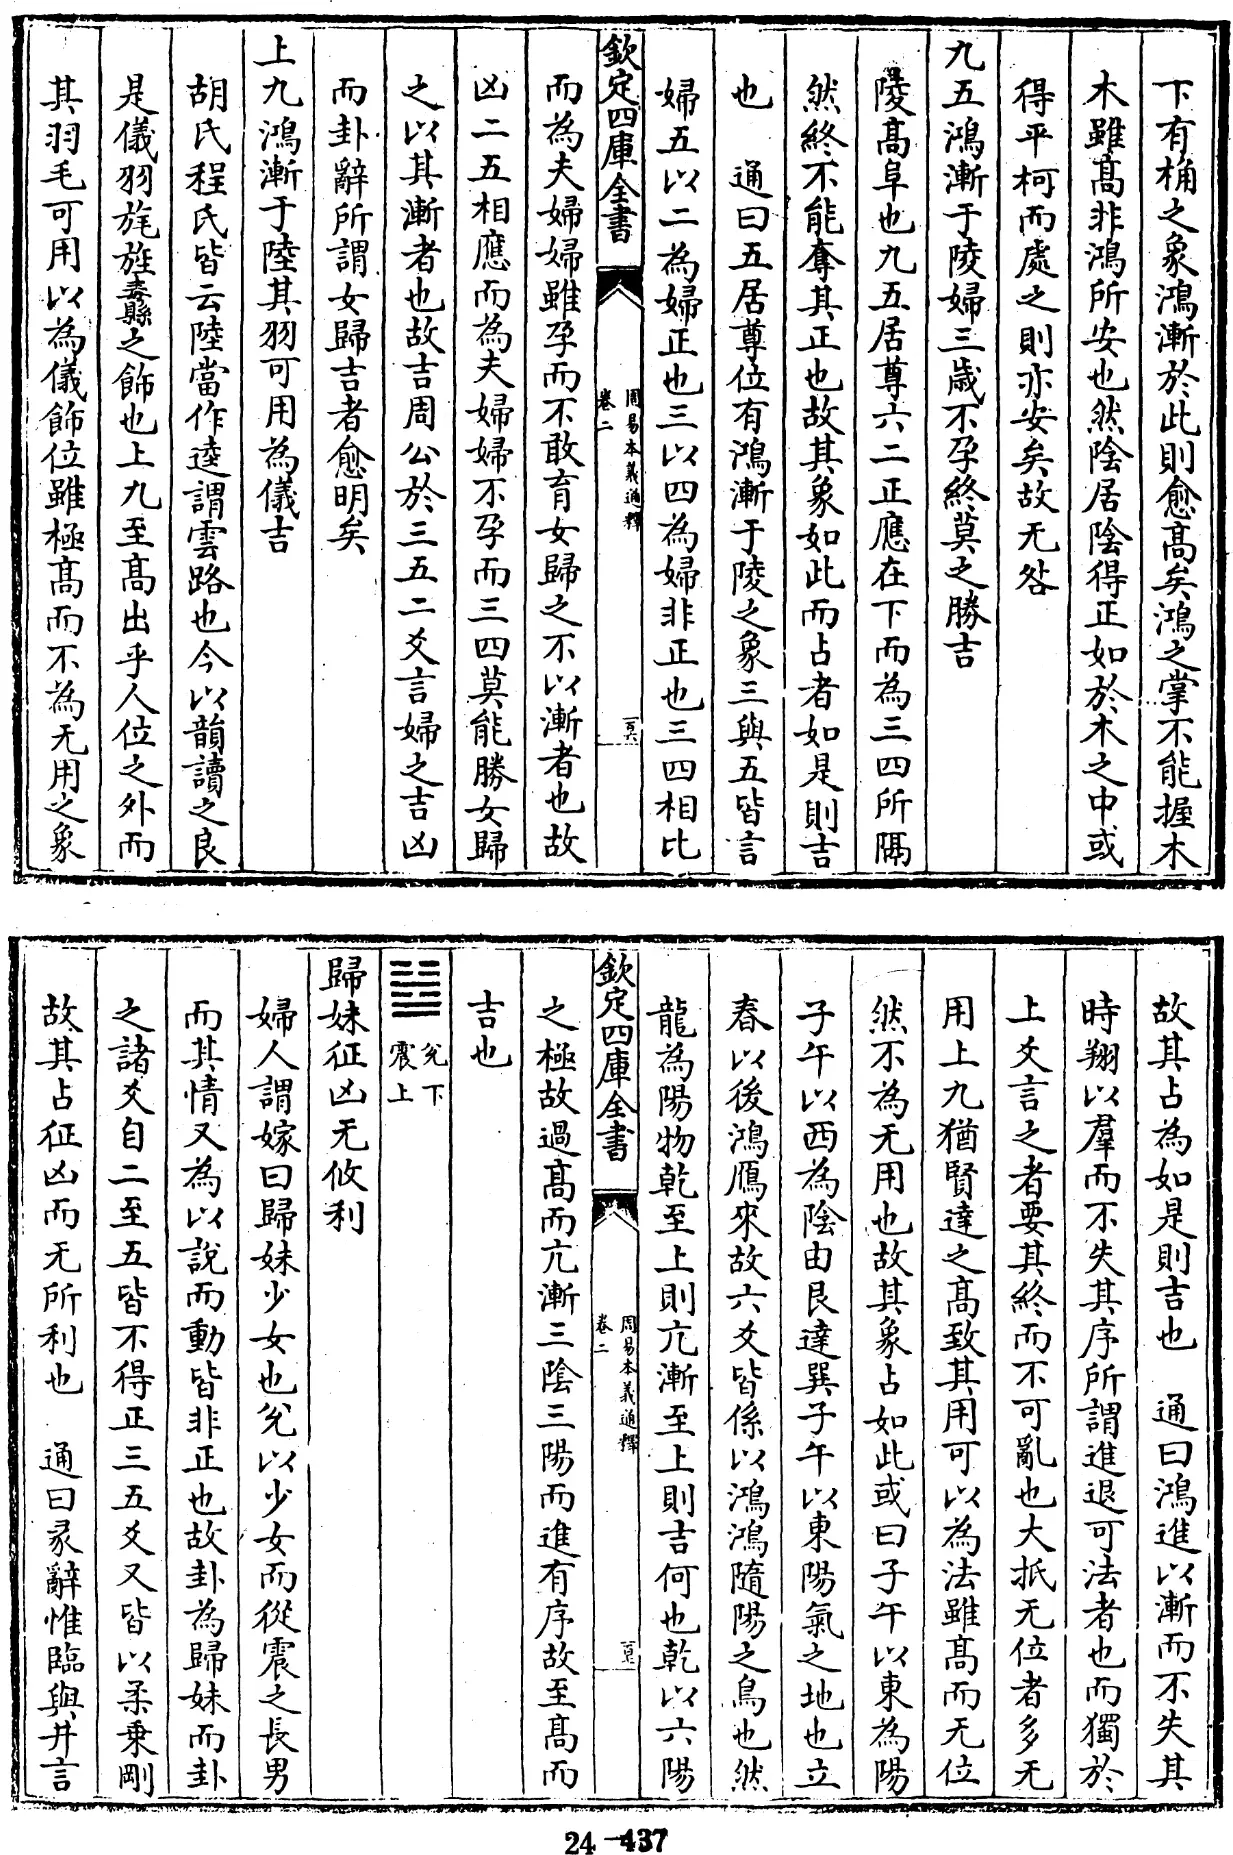 下有桷之象鴻漸於此則愈髙矣鴻之掌不能握木
木雖髙非鴻所安也然陰居陰得正如於木之中或
得平柯而處之則亦安矣故无咎
九五鴻漸于陵婦三歲不孕終莫之勝吉
陵髙阜也九五居尊六二正應在下而為三四所隔
然終不能奪其正也故其象如此而占者如是則吉
也　通曰五居尊位有鴻漸于陵之象三與五皆言
婦五以二為婦正也三以四為婦非正也三四相比
欽定四庫全書
周易本義通釋
卷二
而為夫婦婦雖孕而不敢育女歸之不以漸者也故
凶二五相應而為夫婦婦不孕而三四莫能勝女歸
之以其漸者也故吉周公於三五二爻言婦之吉凶
而卦辭所謂女歸吉者愈明矣
上九鴻漸于陸其羽可用為儀吉
胡氏程氏皆云陸當作逵謂雲路也今以韻讀之良
是儀羽旄旌纛縣之飾也上九至髙出乎人位之外而
其羽毛可用以為儀飾位雖極髙而不為无用之象
故其占為如是則吉也　通曰鴻進以漸而不失其
時翔以羣而不失其序所謂進退可法者也而獨於
上爻言之者要其終而不可亂也大抵无位者多无
用上九猶賢達之髙致其用可以為法雖髙而无位
然不為无用也故其象占如此或曰子午以東為陽
子午以西為陰由艮達巽子午以東陽氣之地也立
春以後鴻鴈來故六爻皆係以鴻鴻隨陽之鳥也然
龍為陽物乾至上則亢漸至上則吉何也乾以六陽
欽定四庫全書
周易本義通釋
卷二
之極故過髙而亢漸三陰三陽而進有序故至髙而
吉也
䷵兌下
震上
歸妹征凶无攸利
婦人謂嫁曰歸妹少女也兌以少女而從震之長男
而其情又為以說而動皆非正也故卦為歸妹而卦
之諸爻自二至五皆不得正三五爻又皆以柔乗剛
故其占征凶而无所利也　通曰彖辭惟臨與井言
24-437